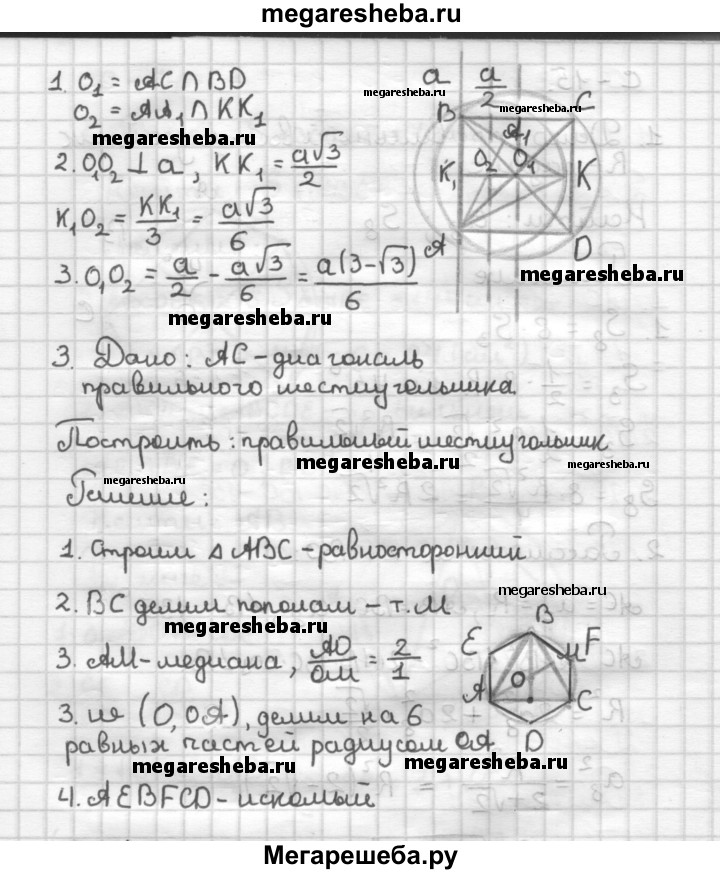 megaresheba.ru
1. O₁ = AC ∩ BD
O₂ = AA₁ ∩ KK₁
megaresheba.ru
2. O₁O₂ ⊥ a, KK₁ = a√3/2
K₁O₂ = KK₁/3 = a√3/6
3. O₁O₂ = a/2 - a√3/6 = a(3-√3)/6
megaresheba.ru
a a/2
megaresheba.ru
megaresheba.ru
B C
A₁
K₁ O₂ O₁ K
A D
megaresheba.ru
3. Дано: AC - диагональ
правильного шестиугольника.
Построить: правильный шестиугольник
megaresheba.ru
megaresheba.ru
megaresheba.ru
Решение:
1. Строим △ ABC - равносторонний
megaresheba.ru
2. BC делим пополам - т. M
megaresheba.ru
3. AM - медиана, AO/OM = 2/1
3. из (O, OA), делим на 6
равных частей радиусом OA
megaresheba.ru
megaresheba.ru
4. AEBFCD - искомый
B
E M F
O
A C
D
Мегарешеба.ру